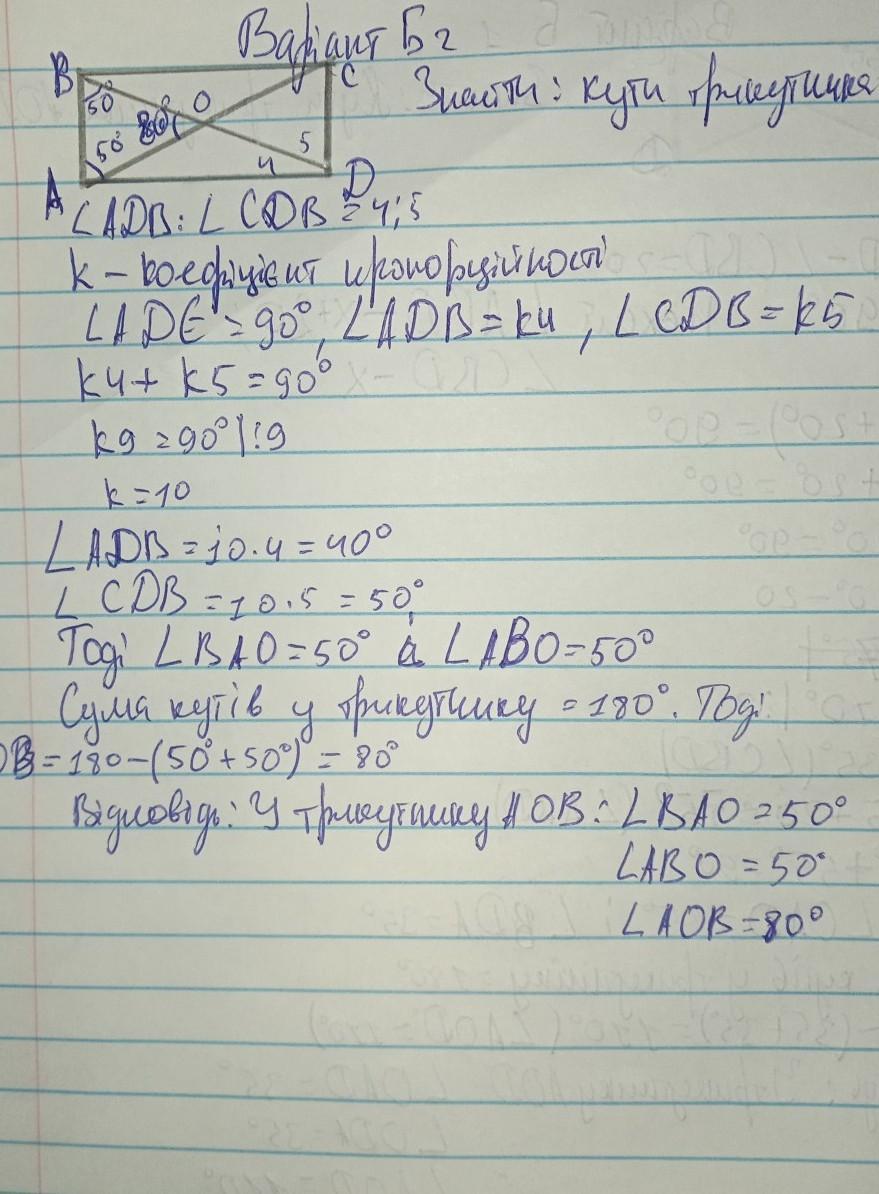 Варіант Б2
B C Знайти: кути трикутника
50° 80° O
50° 5
4
A D
∠ADB:∠CDB=4:5
k - коефіцієнт пропорційності
∠ADC=90°, ∠ADB=k4, ∠CDB=k5
k4+k5=90°
k9=90°|:9
k=10
∠ADB=10·4=40°
∠CDB=10·5=50°
Тоді ∠BAO=50° а ∠ABO=50°
Сума кутів у трикутнику =180°. Тоді
OB=180-(50°+50°)=80°
Відповідь: У трикутнику AOB: ∠BAO=50°
∠ABO=50°
∠AOB=80°